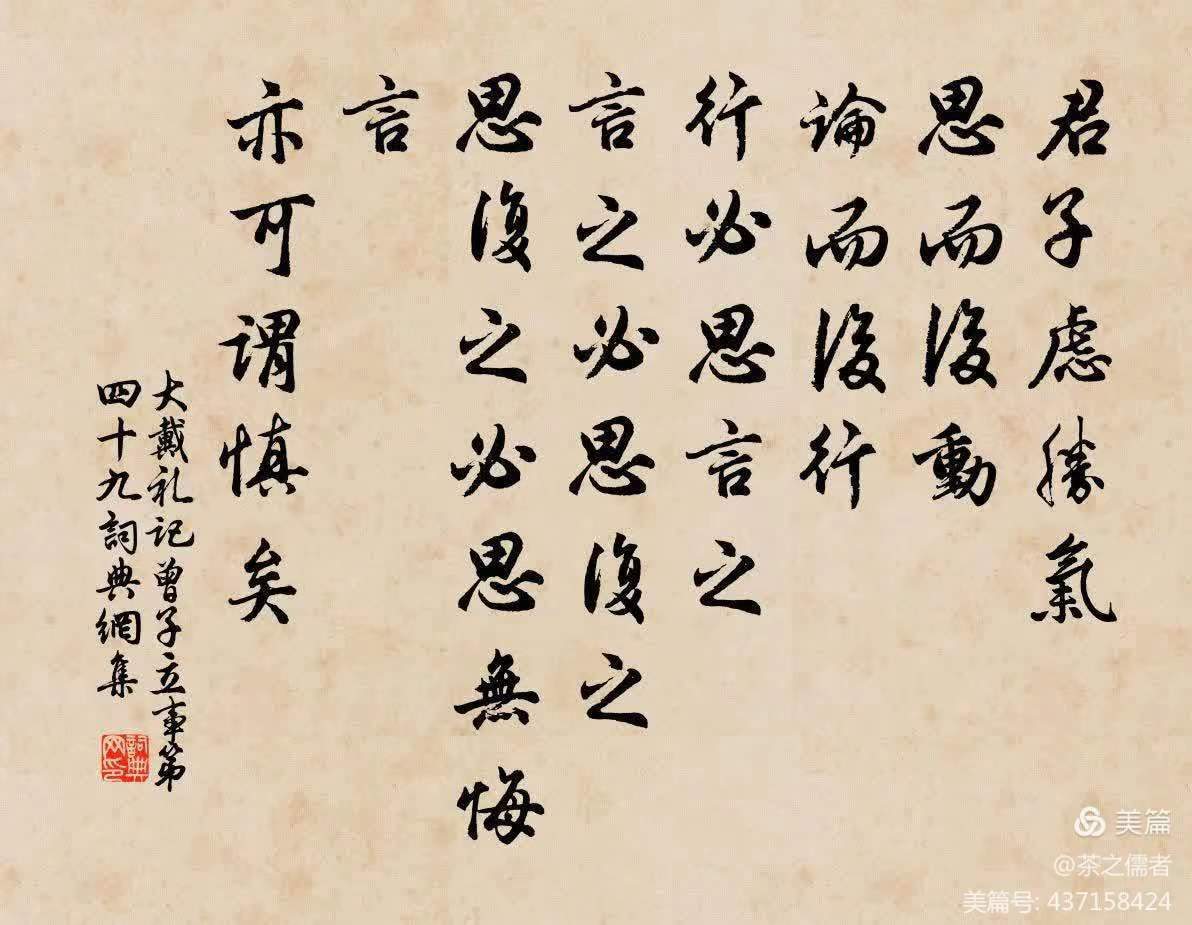 君子慮勝氣
思而後動
論而後行
行必思言之
言之必思復之
思復之必思無悔
言
亦可謂慎矣
大戴礼记曾子立事第
四十九詞典網集
詞典
网印
美篇
@茶之儒者
美篇号: 437158424